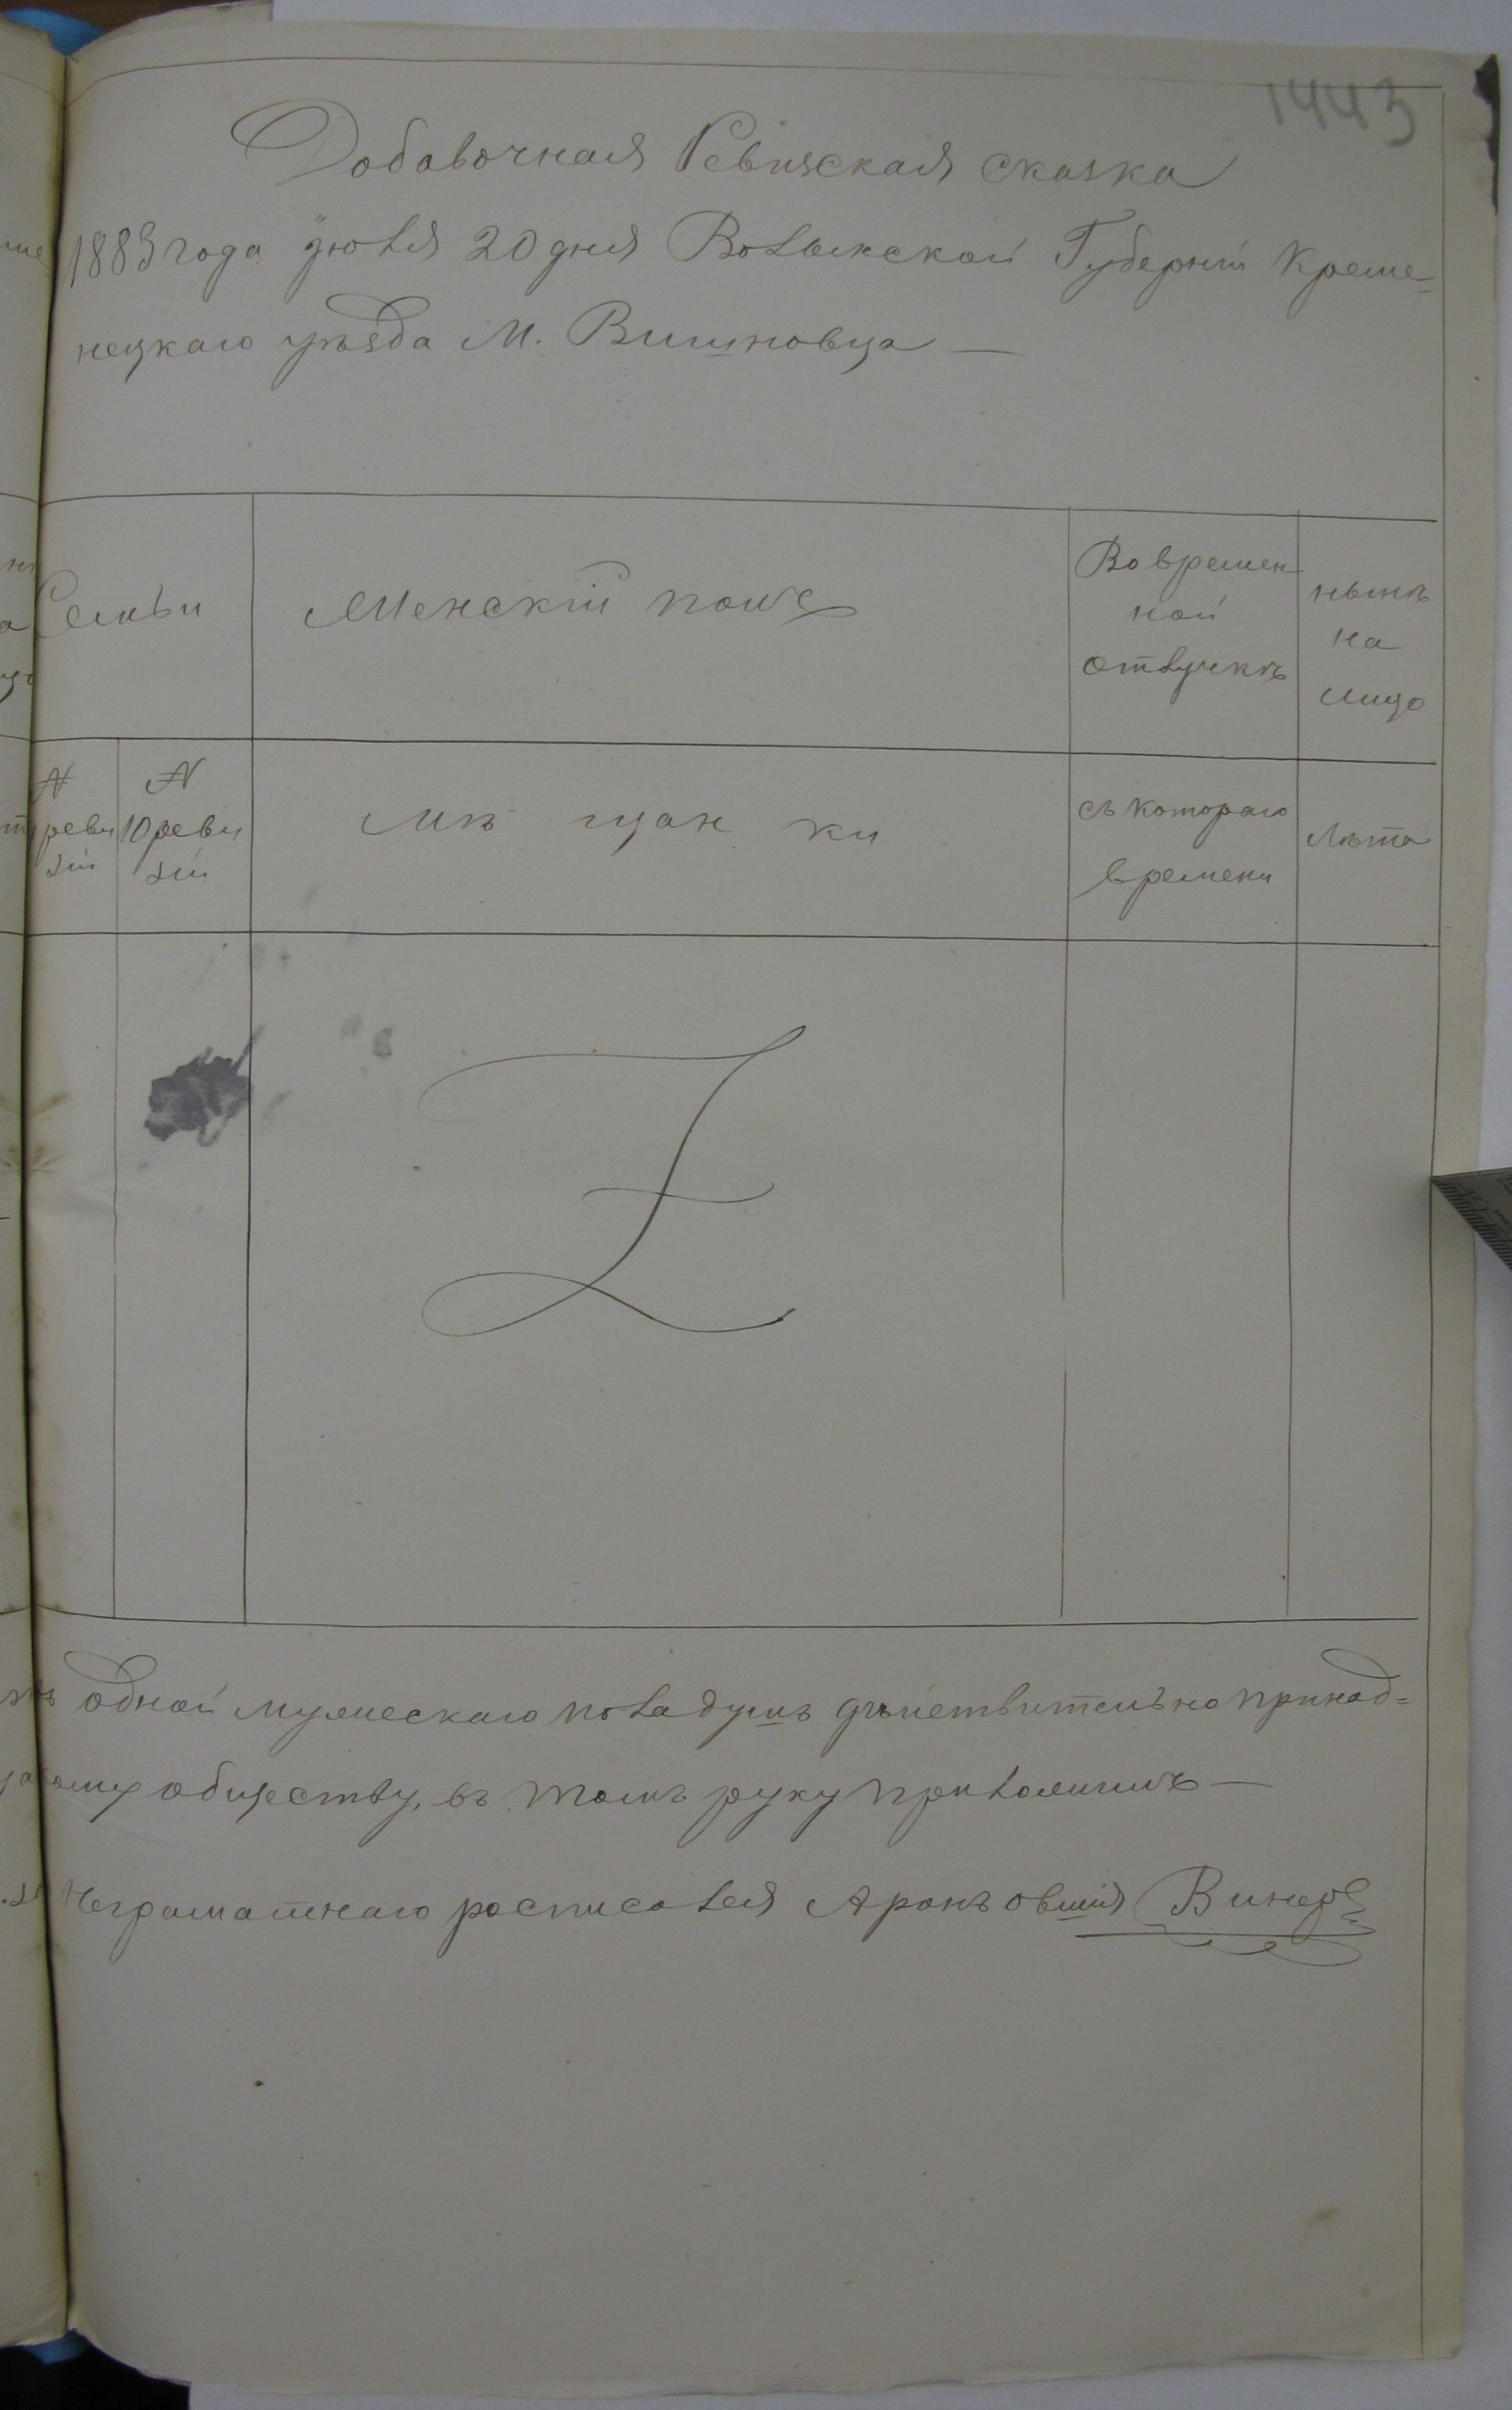 1443
Добавочная Ревизская сказка
1883 года Іюля 20 дня Волынской Губерніи Креме-
нецкаго уѣзда М. Вишновца —
Семьи
Женскій полъ
Во времен
ной
отлучкѣ
нынѣ
на
лицо
№
реви
зіи
№
10 реви
зіи
Мѣ щан ки
съ котораго
времени
Лѣта
одной мужескаго пола душѣ дѣйствительно принад=
обществу, въ томъ руку приложилъ —
Неграматнаго росписался Аронъ Овшія Винер